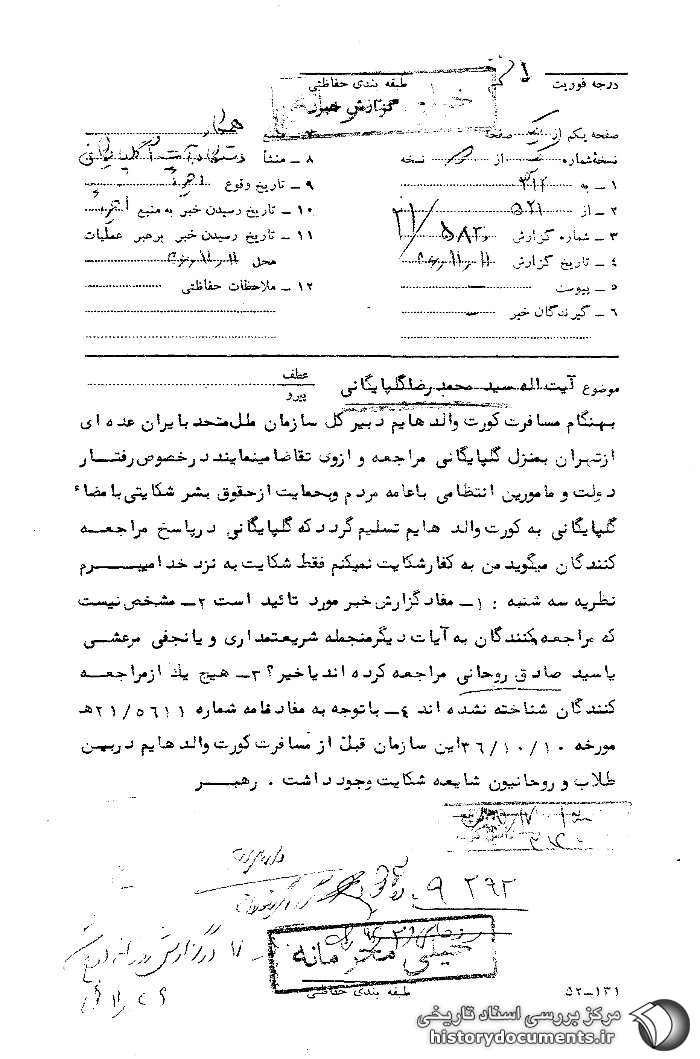 درجه فوریت
طبقه بندی حفاظتی
گزارش خبر
صفحه یکم از یک صفحه
۷ ـ منبع همکار
نسخه شماره از نسخه
۸ ـ منشأ
۱ ـ به ۳۱۲
۹ ـ تاریخ وقوع
۲ ـ از ۵۲۱
۱۰ ـ تاریخ رسیدن خبر به منبع
۳ ـ شماره گزارش
۱۱ ـ تاریخ رسیدن خبر برهبر عملیات
۴ ـ تاریخ گزارش
محل
۵ ـ پیوست
۱۲ ـ ملاحظات حفاظتی
۶ ـ گیرندگان خبر
موضوع آیت اله سید محمد رضا گلپایگانی
عطف
پیرو
بهنگام مسافرت کورت والد هایم دبیر کل سازمان ملل متحد بایران عده ای
ازتهران بمنزل گلپایگانی مراجعه و ازوی تقاضا مینمایند درخصوص رفتار
دولت و مامورین انتظامی باعامه مردم وبحمایت ازحقوق بشر شکایتی بامضاء
گلپایگانی به کورت والد هایم تسلیم گردد که گلپایگانی درپاسخ مراجعه
کنندگان میگوید من به کفار شکایت نمیکنم فقط شکایت به نزد خدا میبرم
نظریه سه شنبه : ۱ـ مفاد گزارش خبر مورد تائید است ۲ـ مشخص نیست
که مراجعه کنندگان به آیات دیگر منجمله شریعتمداری و یا نجفی مرعشی
یا سید صادق روحانی مراجعه کرده اند یا خیر؟ ۳ـ هیچ یک ازمراجعه
کنندگان شناخته نشده اند ۴ـ باتوجه به مفاد نامه شماره ۲۱/۵۶۱۱ه‍
مورخه ۳۶/۱۰/۱۰ این سازمان قبل از مسافرت کورت والد هایم دربین
طلاب و روحانیون شایعه شکایت وجود داشت . رهبر
۹۲۹۲
خیلی محرمانه
طبقه بندی حفاظتی
۵۲ــ۱۳۱
مرکز بررسی اسناد تاریخی
historydocuments.ir